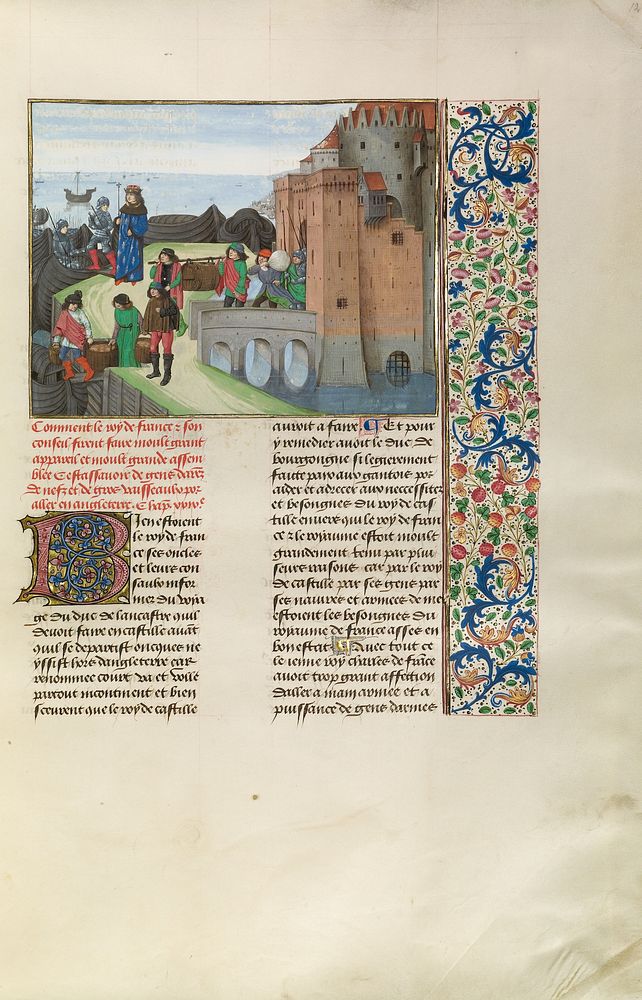 Comment le roy de france & son
conseil firent faire moult grant
appareil et moult grande assem
blee Cestassavoir de gens darmes
de nefz et de gros vaisseaulx por
aller en angleterre. Chap.
Bien estoient
le roy de fran
ce ses oncles
et leurs con
saulx infor
mez du voia
ge du duc de lancastre quil
devoit faire en castille avāt
quil se departist Oncques ne
yssist hors dangleterre car
renommee court va et volle
partout incontinent et bien
sceurent que le roy de castille
auroit a faire Et pour
y remedier avoit le duc de
bourgoingne si legierement
faitte paix aux gantois por
aider et adrecer aux necessitez
et besongnes du roy de cas
tille envers qui le roy de fran
ce & le royaume estoit moult
grandement tenu par plu
seurs raisons car par le roy
de castille par ses gens par
ses navires et armees de mer
estoient les besongnes du
royaume de france asses en
bon estat Avec tout ce
le ienne roy charles de frāce
avoit trop grant affection
daller a main armee et a
puissance de gens darmes